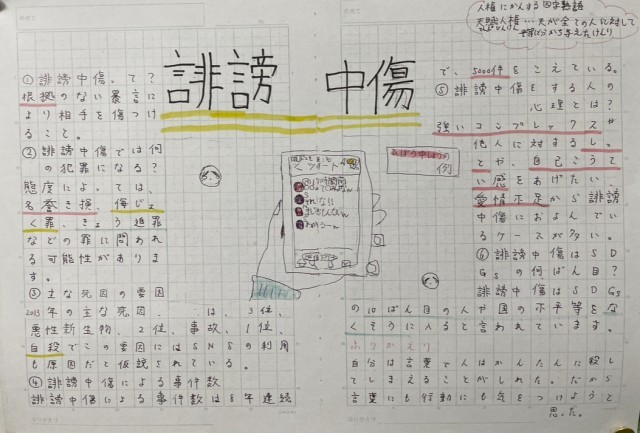 誹謗 中傷
①誹謗中傷って?
根拠のない暴言に
より相手を傷つけ
ること。
②誹謗中傷では何
の犯罪になる?
態度によっては、
名誉き損、傷じょ
く罪、きょう迫罪
などの罪に問われ
る可能性がありま
す。
③主な死因の要因
の主な死因、は、3位、
悪性新生物、2位、事故、1位、
自殺でこの要因にはSNSの利用
も原因だと仮説されている。
④誹謗中傷による事件数
誹謗中傷による事件数は8年連続
で、5000件をこえている。
⑤誹謗中傷をする人の
心理とは?
強いコンプレックスや
他人に対するし
っと、自己こうて
い感をあげたい、
愛情不足から誹謗
中傷におよんでい
るケースが多い。
⑥誹謗中傷はSD
Gsの何ばん目?
誹謗中傷はSDGs
の10ばん目の人や国の不平等をな
くそうに入ると言われています。
ふりかえり
自分は言葉で人はかんたんに殺し
てしまえることがしれた。だから
言葉にも行動にも気をつけようと
思った。
人権にかんする四字熟語
天賦人権…天が全ての人に対して
の例
ツイート